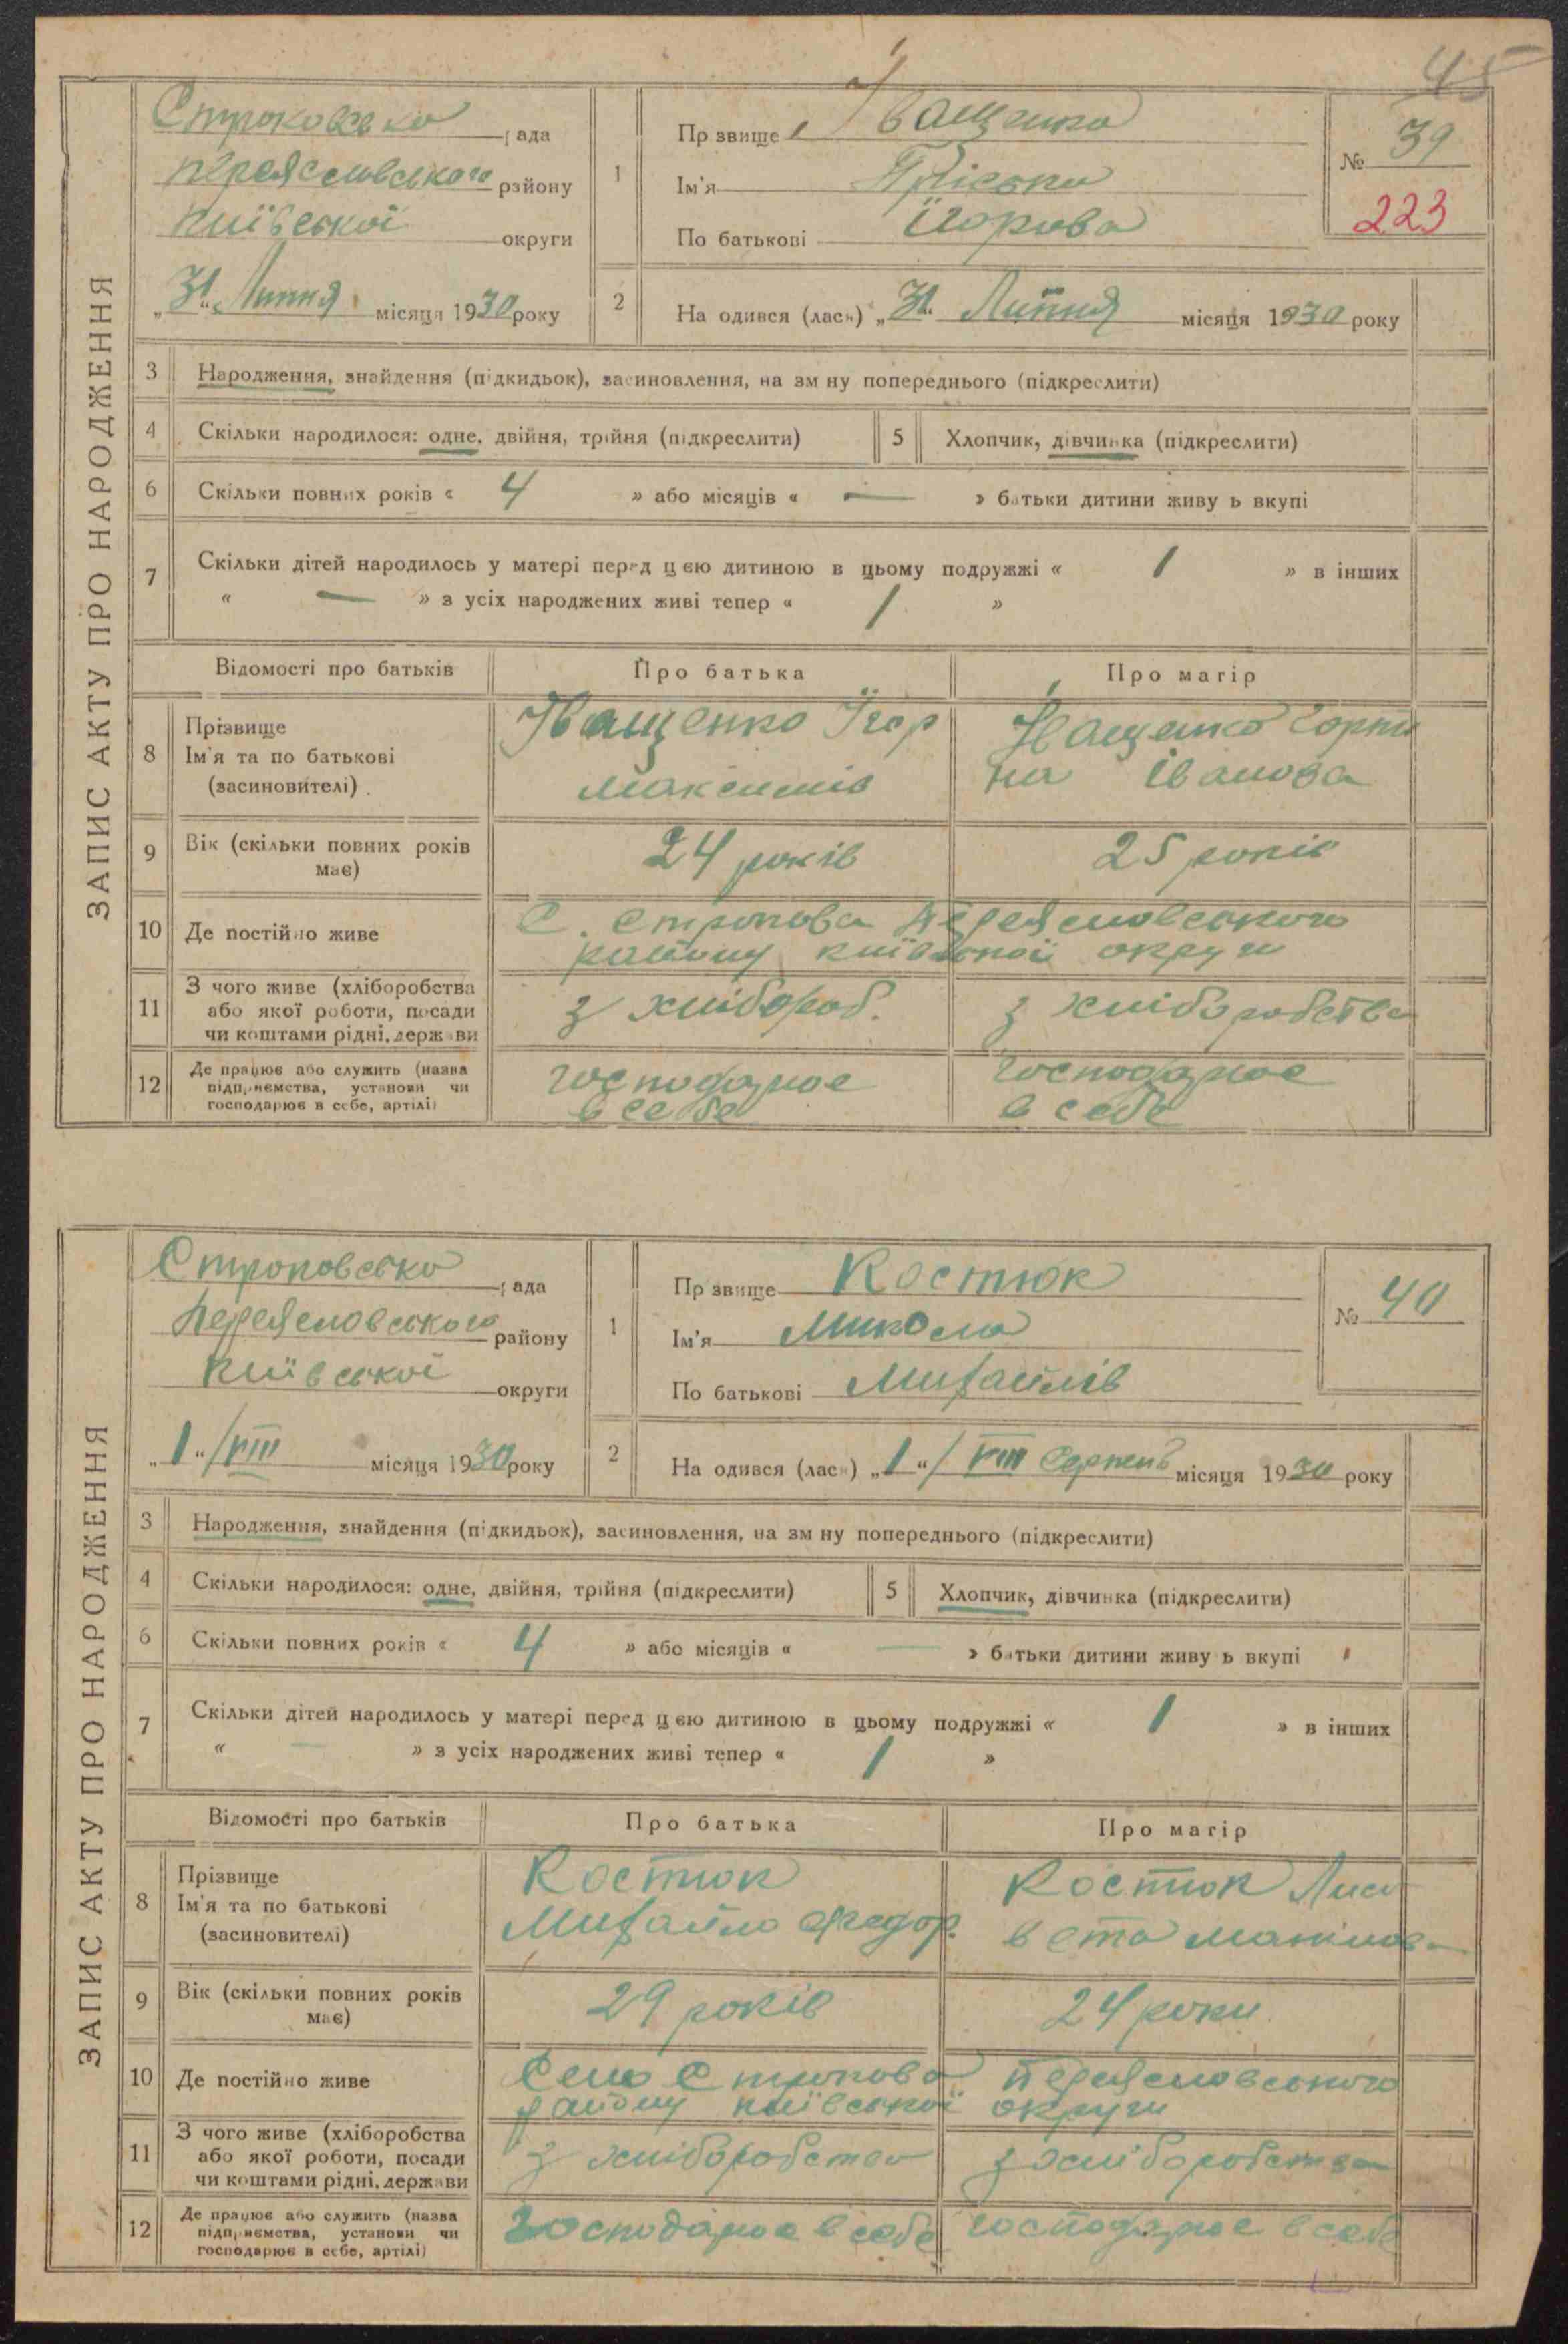 45
ЗАПИС АКТУ ПРО НАРОДЖЕННЯ
Строковська рада
Переяславського району
Київської округи
„31“ Липня місяця 1930 року
1
Прізвище Іващенко
Ім'я Пріська
По батькові Ігорова
№ 39
223
2
На одився (лась) „31“ Липня місяця 1930 року
3 Народження, знайдення (підкидьок), засиновлення, на зм ну попереднього (підкреслити)
4 Скільки народилося: одне, двійня, трійня (підкреслити)
5 Хлопчик, дівчинка (підкреслити)
6 Скільки повних років « 4 » або місяців « — » батьки дитини живу ь вкупі
7 Скільки дітей народилось у матері перед цею дитиною в цьому подружжі « 1 » в інших
« — » з усіх народжених живі тепер « 1 »
Відомості про батьків Про батька Про матір
8 Прізвище
Ім'я та по батькові
(засиновителі)
Іващенко Ігор
Максимів
Іващенко Горпи
на Іванова
9 Вік (скільки повних років
має)
24 років
25 років
10 Де постійно живе
С. Строкова Переяславського
району київської округи
11 З чого живе (хліборобства
або якої роботи, посади
чи коштами рідні, держави
з хлібороб.
з хліборобства
12 Де працює або служить (назва
підприємства, установи чи
господарює в себе, артілі)
господарює
в себе
господарює
в себе
ЗАПИС АКТУ ПРО НАРОДЖЕННЯ
Строковсько рада
Переяславського району
Київської округи
„1“/VIII місяця 1930 року
1
Пр звище Костюк
Ім'я Микола
По батькові Михайлів
№ 40
2
На одився (лась) „1“/ VIII Серпень місяця 1930 року
3 Народження, знайдення (підкидьок), засиновлення, на зм ну попереднього (підкреслити)
4 Скільки народилося: одне, двійня, трійня (підкреслити)
5 Хлопчик, дівчинка (підкреслити)
6 Скільки повних років « 4 » або місяців « — » батьки дитини живу ь вкупі
7 Скільки дітей народилось у матері перед цею дитиною в цьому подружжі « 1 » в інших
« — » з усіх народжених живі тепер « 1 »
Відомості про батьків Про батька Про матір
8 Прізвище
Ім'я та по батькові
(засиновителі)
Костюк
Михайло Федор.
Костюк Лиса
вета
9 Вік (скільки повних років
має)
29 років
24 роки
10 Де постійно живе
Село Строкова Переяславського
району київської округи
11 З чого живе (хліборобства
або якої роботи, посади
чи коштами рідні, держави
з хліборобства
з хліборобства
12 Де працює або служить (назва
підприємства, установи чи
господарює в себе, артілі)
Господарює в себе
господарює в себе